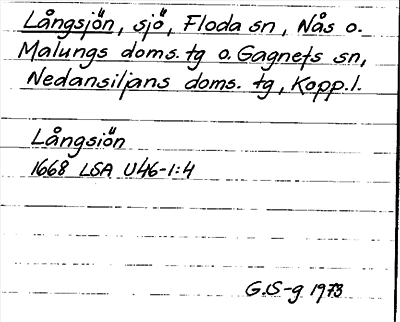 Långsjön, sjö, Floda sn, Nås o.
Malungs doms. tg o. Gagnefs sn,
Nedansiljans doms. tg, Kopp.l.
Långsiön
1668 LSA U46-1:4
G.S-g 1973